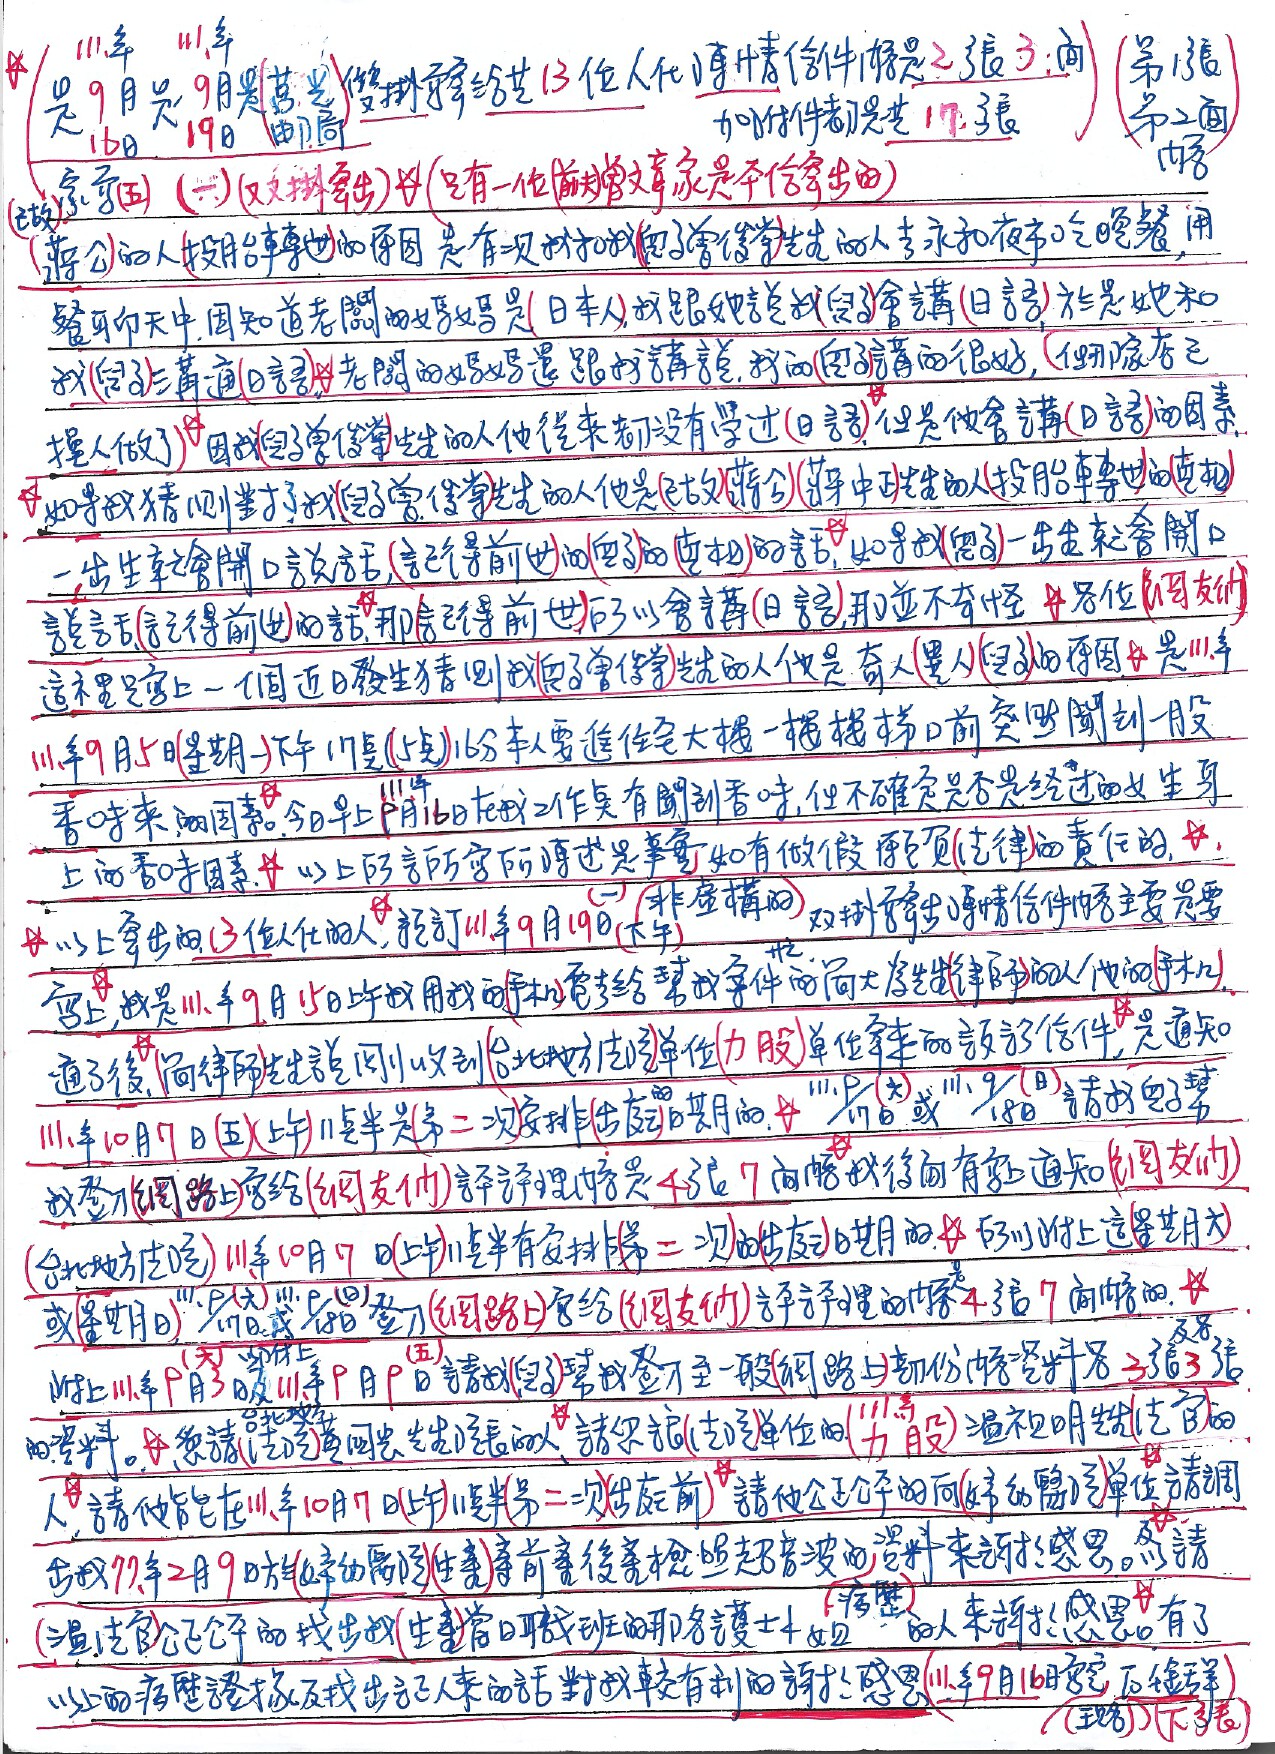 ☆(111.年 111.年
是9月是9月是(萬芳)雙掛寄給共13位人仕陳情信件內容是2張3.面)(第1張
16日 19日 郵局 加附件都是共17.張 第2面
內容
家.寄(五)(一)(双掛寄出)☆(只有一位(前夫)曾文章家是平信寄出的)
(已故)
(蔣公)的人(投胎轉世)的原因是有次我和我(兒子)曾俊堂先生的人去永和夜市吃晚餐,用
餐聊天中.因知道老闆的媽媽是(日本人),我跟她說我(兒子)會講(日語)於是她和
我(兒子)溝通(日語)☆老闆的媽媽還跟我講說.我的(兒子)講的很好,(但那家店已
換人做了)☆因我(兒子)曾俊堂先生的人他從來都沒有學过(日語)☆但是他會講(日語)的因素.
☆如果我猜測對了,我(兒子)曾俊堂先生的人他是(已故)(蔣公)(蔣中正)先生的人(投胎轉世)的(真相)
一出生就會開口說話,(記得前世)的(兒子)的(真相)的話☆如果我(兒子)一出生就會開口
說話(記得前世)的話☆那(記得前世)所以會講(日語)那並不奇怪☆各位(網友們)
這裡只寫上一個近日發生猜測我(兒子)曾俊堂先生的人他是奇人(異人)(兒子)的原因☆是111.年
111.年9月5日(星期一)下午17點(5点)16分本人要進住宅大樓一樓樓梯口前突然聞到一股
香味來的因素☆今日早上111年9月16日在我工作奌有聞到香味,但不確定是否是經过的女生身
上的香味因素☆以上所言所寫所陳述是事實,如有做假願負(法律)的責任的.☆.
☆以上寄出的13位人仕的人☆預訂111.年9月19日(一)(下午)(非虛構的)双掛寄出陳情信件內容主要是要
寫上☆我是111.年9月15日上午我用我的(手机)電話給幫我案件的簡大為先生(律師)的人他的(手机).
通了後☆簡律師先生說剛收到(台北地方法院)單位(力股)單位寄來的該訴信件☆是通知
111.年10月7日(五)(上午)11點半是(第二次)安排(出庭)的日期的.☆111.9/17日(六)或111.9/18日(日)請我兒子幫
我登刊(網路上)寫給(網友們)評評理內容是4張7面內容☆我後面有寫上通知(網友們)
(台北地方法院)111.年10月7日(上午)11點半有安排(第二次)的(出庭)日期的.☆所以附上這(星期六)
或(星期日)111.9/17日(六)或111.9/18日(日)登刊(網路上)寫給(網友們)評評理的內容是4張7面內容的.☆
附上111.年9月3日(六)及附上111.年9月9日(五)請我(兒子)幫我登刊至一般(網路上)部份內容資料各3張及各3張
的資料。☆懇請台北地方(法院)黃國忠先生院長的人☆請您請(法院)單位的(111.年力股)溫祖明先生(法官)的
人☆請他能在111.年10月7日(上午)11點半(第二次)(出庭前)☆請他公正公平的向(婦幼醫院)單位☆請調
出我77.年2月9日於(婦幼醫院)(生產)產前產後產檢照超音波的資料來謝謝感恩。及☆請
(溫法官)公正公平的找出我(生產)當日職班的那名護士小姐(病歷)的人來謝謝感恩☆有了
以上的病歷證據及找出証人來的話對我較有利的謝謝感恩(111.年9月16日寫完)
(下3表)